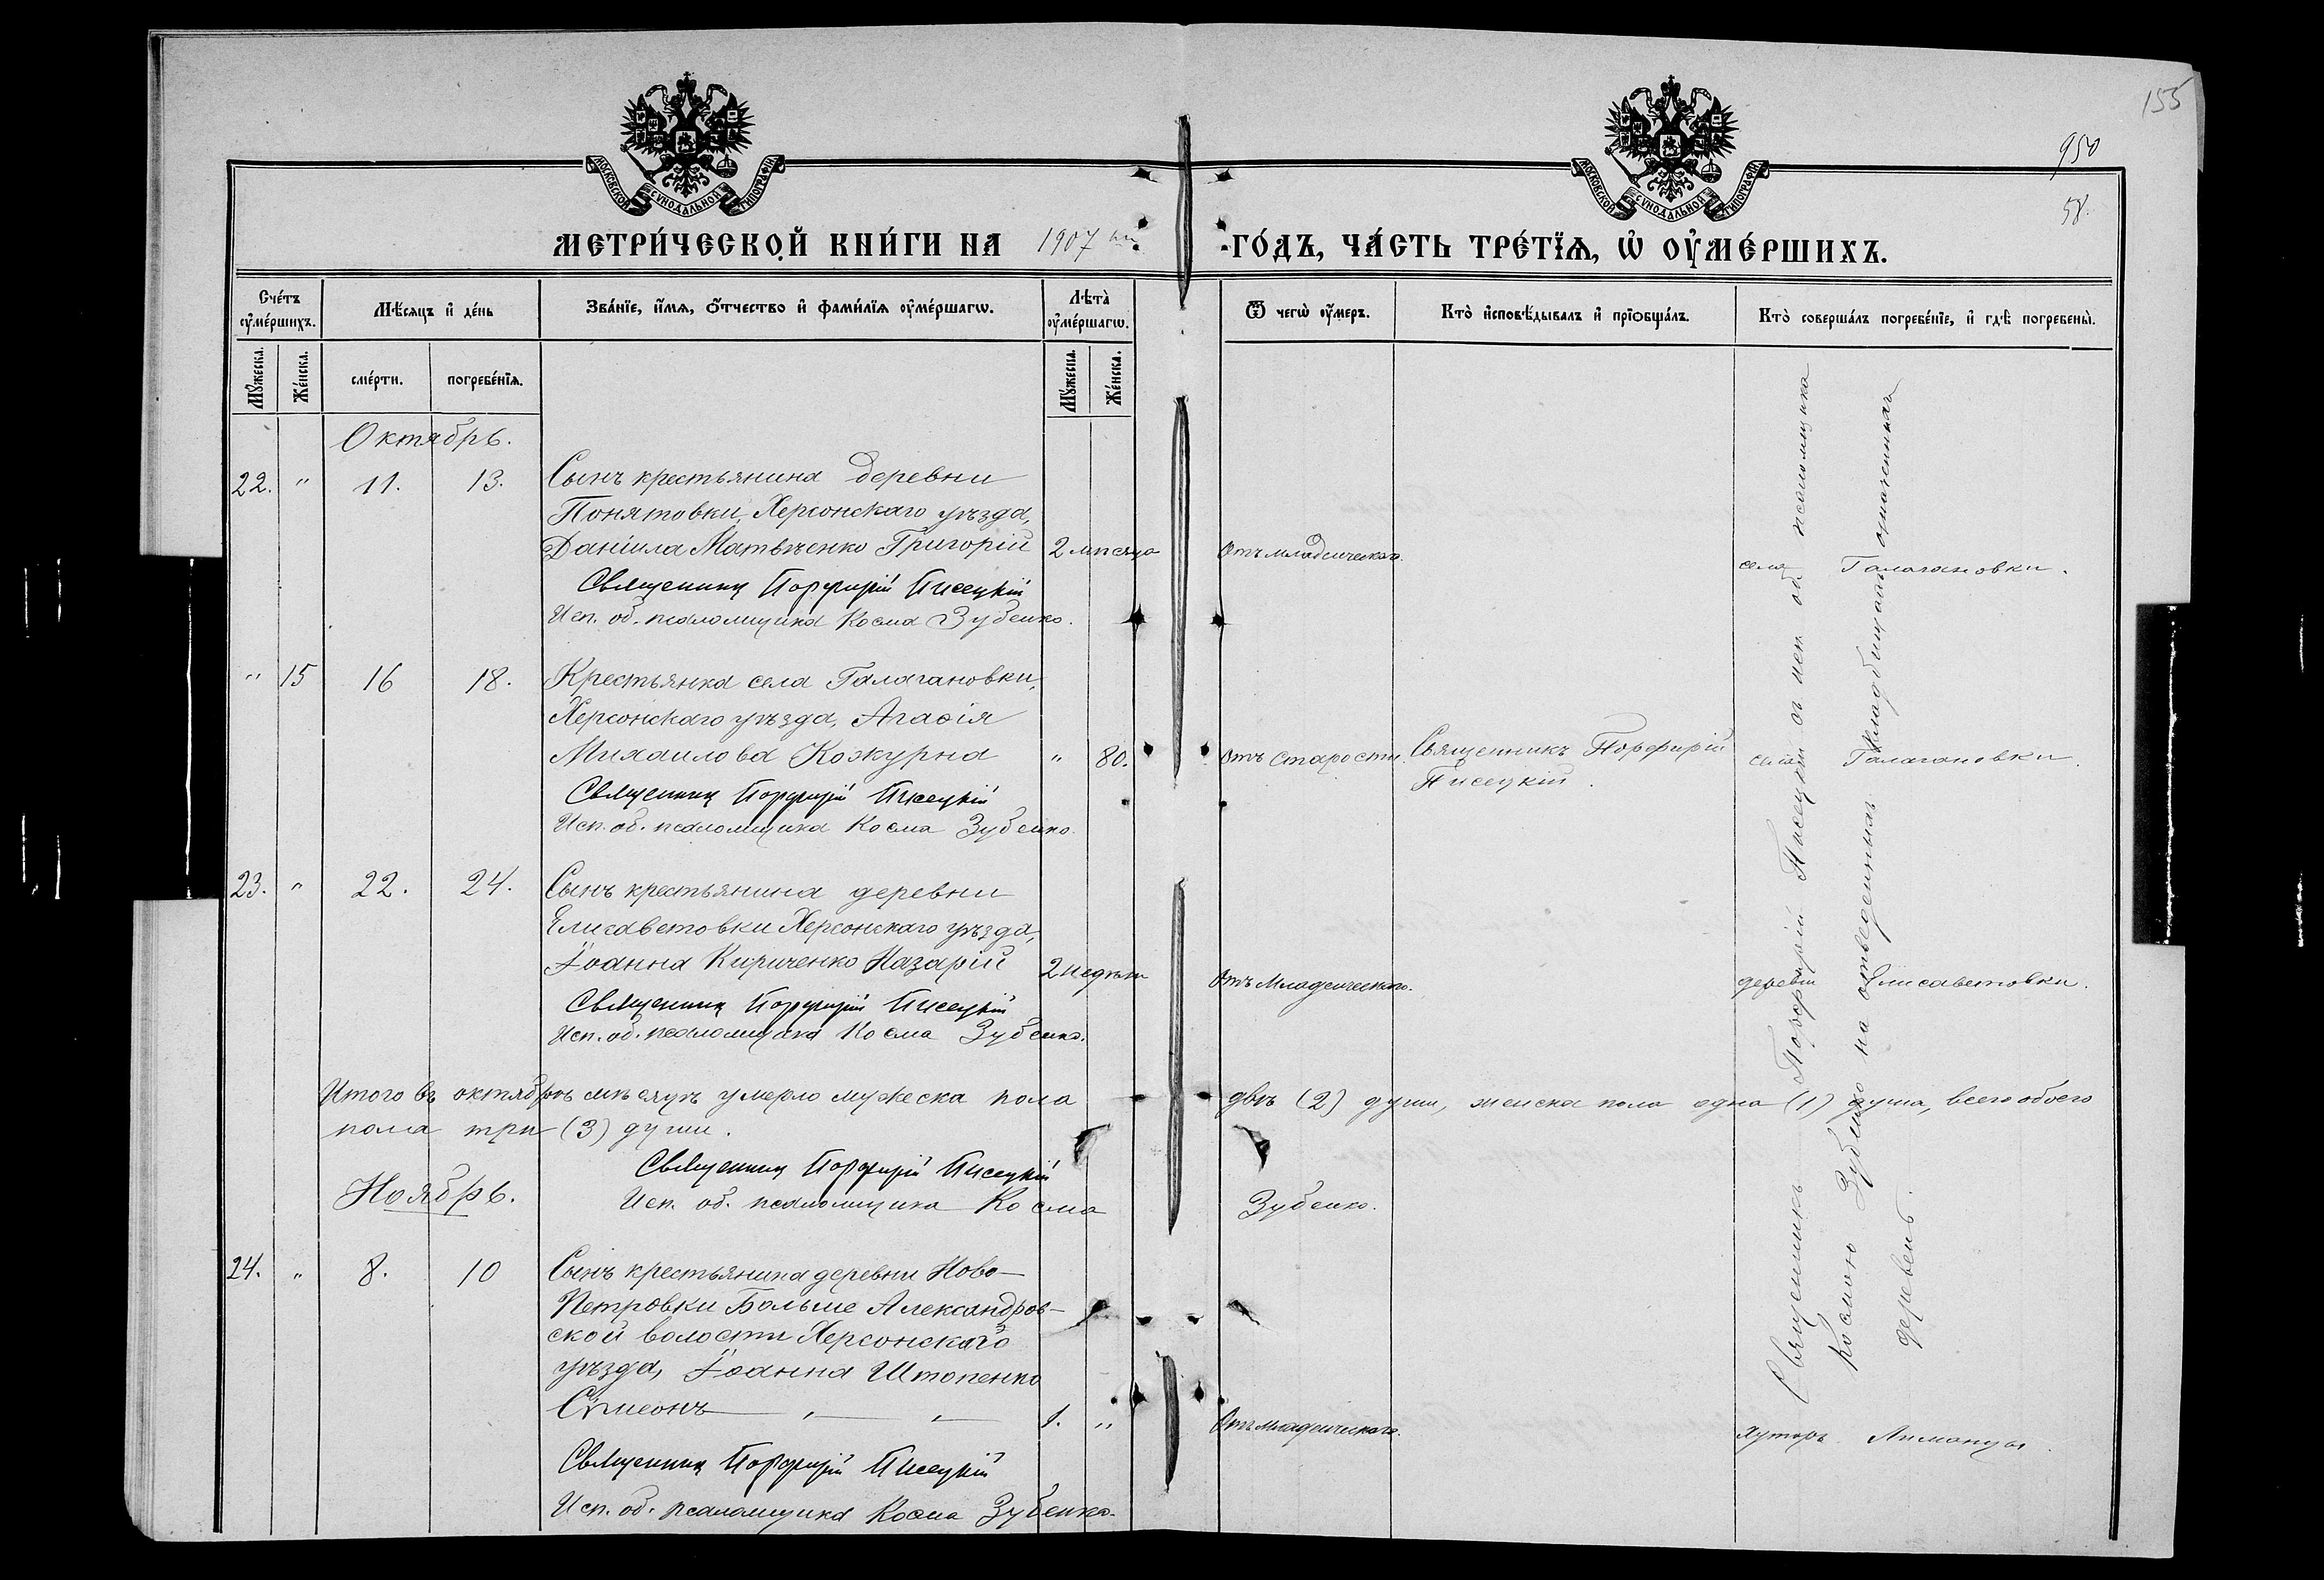 155
950
58.
МОСКОВСКОЙ СѴНОДАЛЬНОЙ ТИПОГРАФІИ
МОСКОВСКОЙ СѴНОДАЛЬНОЙ ТИПОГРАФІИ
МЕТРИ́ЧЕСКОЙ КНИ́ГИ НА 1907 ГО́ДЪ, ЧА́СТЬ ТРЕ́ТЇѦ, Ѿ ОУ҆МЕ́РШИХЪ.
Счетъ оумершихъ. Мѣсяцъ и день Званіе, имя, отчество и фамилія оумершагѡ. Лѣта оумершагѡ. Ѿ чегѡ оумеръ. Кто исповѣдывалъ и пріобщалъ. Кто совершалъ погребеніе, и гдѣ погребены.
Мужеска. Женска. смерти. погребенія. Мужеска. Женска.
Октябрь.
22. " 11. 13. Сынъ крестьянина деревни
Понятовки, Херсонскаго уѣзда,
Даніила Матвѣенко Григорій 2 мѣсяца Отъ младенческаго. села Галагановки.
Священникъ Порфирій Писецкій
Исп. об. псаломщика Косма Зубенко.
" 15 16 18. Крестьянка села Галагановки,
Херсонскаго уѣзда, Агаѳія
Михаилова Кожурна " 80. Отъ старости. Священникъ Порфирій Писецкій. села Галагановки.
Священникъ Порфирій Писецкій
Исп. об. псаломщика Косма Зубенко.
23. " 22. 24. Сынъ крестьянина деревни
Елисаветовки Херсонскаго уѣзда,
Іоанна Кириченко Назарій 2 недѣли Отъ младенческаго. деревни Елисаветовки.
Священникъ Порфирій Писецкій
Исп. об. псаломщика Косма Зубенко.
Итого въ октябрѣ мѣсяцѣ умерло мужеска пола двѣ (2) души, женска пола одна (1) душа, всего обоего
пола три (3) души.
Священникъ Порфирій Писецкій
Исп. об. псаломщика Косма Зубенко.
Ноябрь.
24. " 8. 10 Сынъ крестьянина деревни Ново-
Петровки Больше Александров-
ской волости Херсонскаго
уѣзда, Іоанна Штопенко
Сѷмеонъ 1. " Отъ младенческаго. хуторъ Лиманцы.
Священникъ Порфирій Писецкій
Исп. об. псаломщика Косма Зубенко.
Священникъ Порфирій Писецкій съ исп. об. псаломщика
Космою Зубенко на отведенныхъ кладбищахъ означенныхъ
деревень.